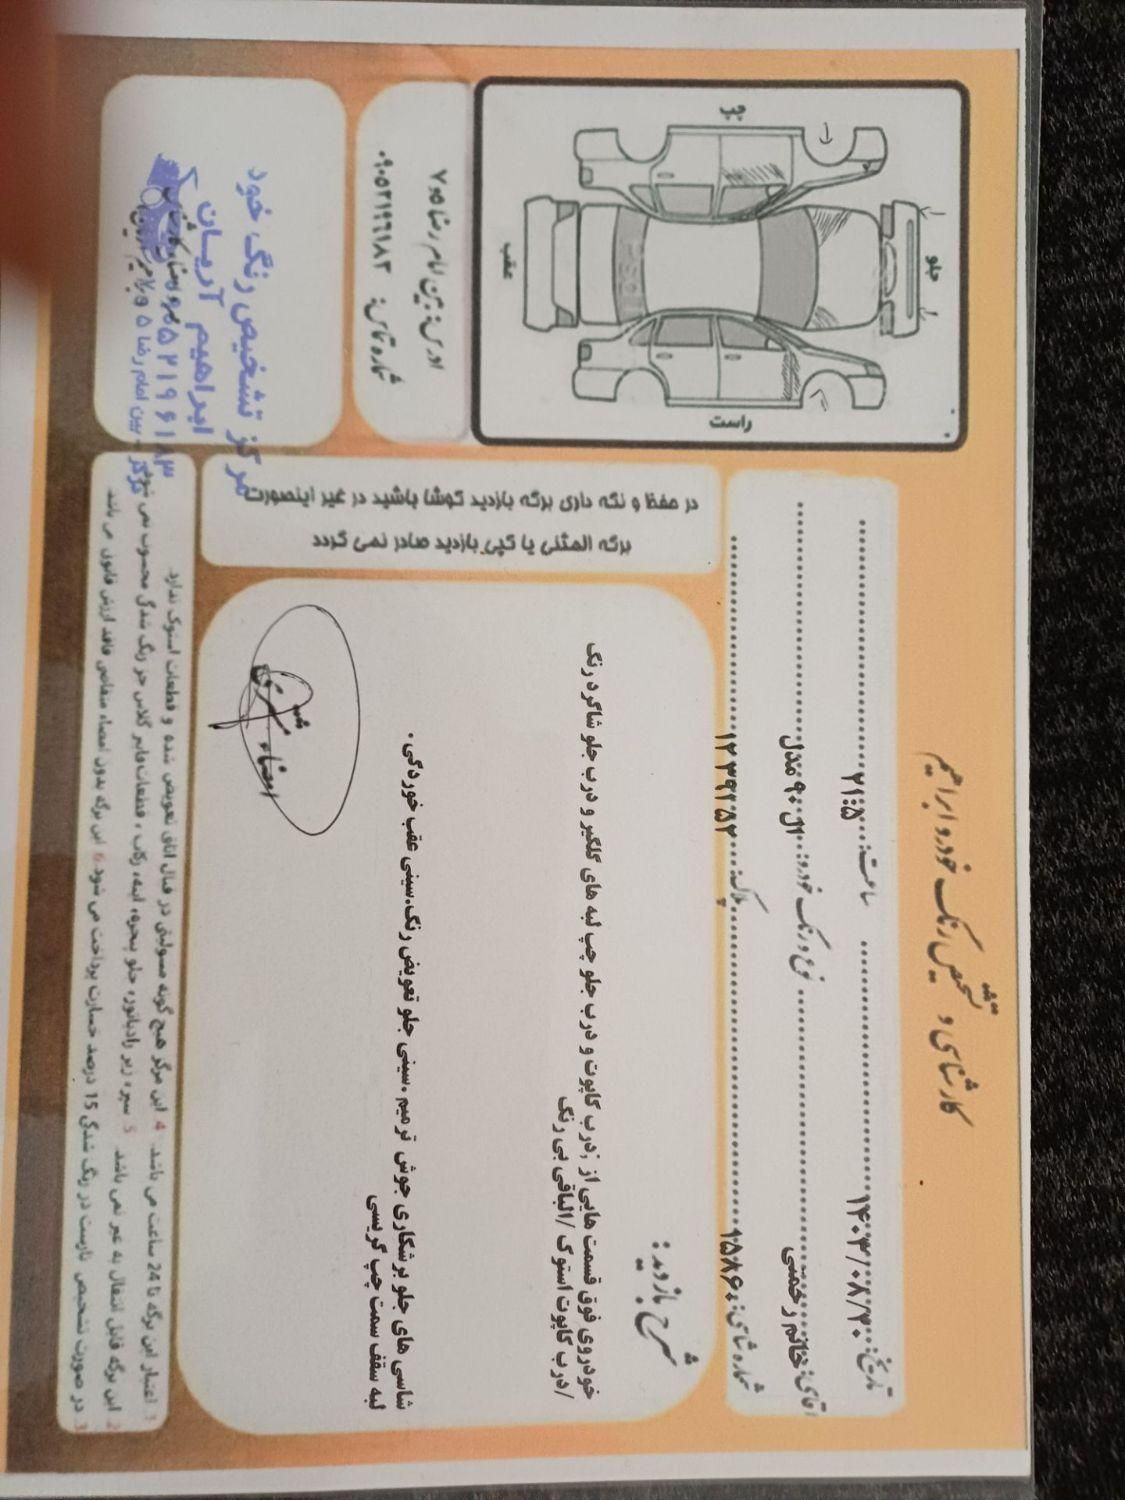 کارشناسی و تشخیص رنگ خودرو ابراهیم
تاریخ: ۱۴۰۳/۰۸/۲۰ ساعت: ۲۱:۵
آقای: خانم رحمتی نوع و رنگ خودرو: ال ۹۰ مدل
شماره شاسی: ۱۵۸۶۰ پلاک: ۱۲
شرح بازدید:
خودروی فوق قسمت هایی از :درب کاپوت و درب جلو چپ لبه های گلگیر و درب جلو شاگرد رنگ
/درب کاپوت استوک /الباقی بی رنگ
شاسی های جلو برشکاری جوش ترمیم .سینی جلو تعویض رنگ.سینی عقب خوردگی .
لبه سقف سمت چپ گریسی
امضاء مشتری
چپ
جلو
عقب
راست
آدرس: بین امام رضا ۵ و ۷
شماره تماس: ۰۹۰۵۲۱۹۶۱۸۳
در حفظ و نگه داری برگه بازدید کوشا باشید در غیر اینصورت
برگه المثنی یا کپی بازدید صادر نمی گردد
مرکز تشخیص رنگ خود
ابراهیم آریان
بین امام رضا ۵ و
1 اعتبار این برگه تا 24 ساعت می باشد. 4 این مرکز هیچ گونه مسولیتی در قبال اتاق تعویض شده و قطعات استوک ندارد.
2 این برگه قابل انتقال به غیر نمی باشد. 5 سپر، زیر رادیاتور، جلو پنجره، آینه، رکاب ، قطعات فایبر گلاس جز رنگ شدگی محسوب نمی شود
3 در صورت تشخیص نادرست در رنگ شدگی 15 درصد خسارت پرداخت می شود. 6 این برگه بدون امضاء متقاضی فاقد ارزش قانونی می باشد.